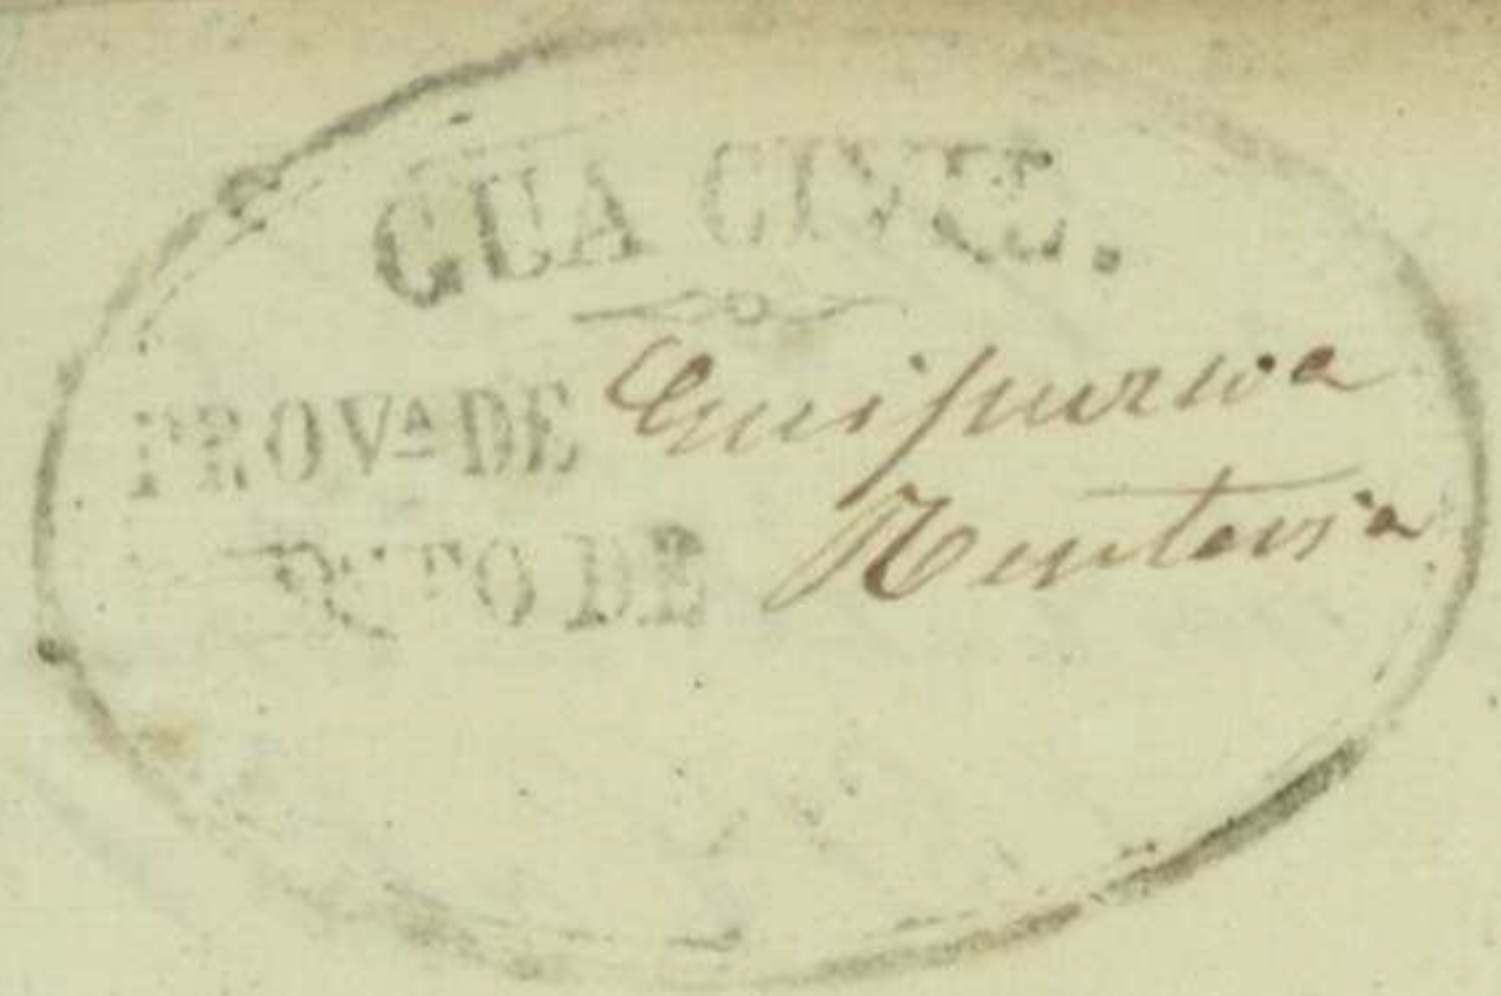 GUA CIVIL.
PROVª DE Guipuzcoa
PTO DE Renteria